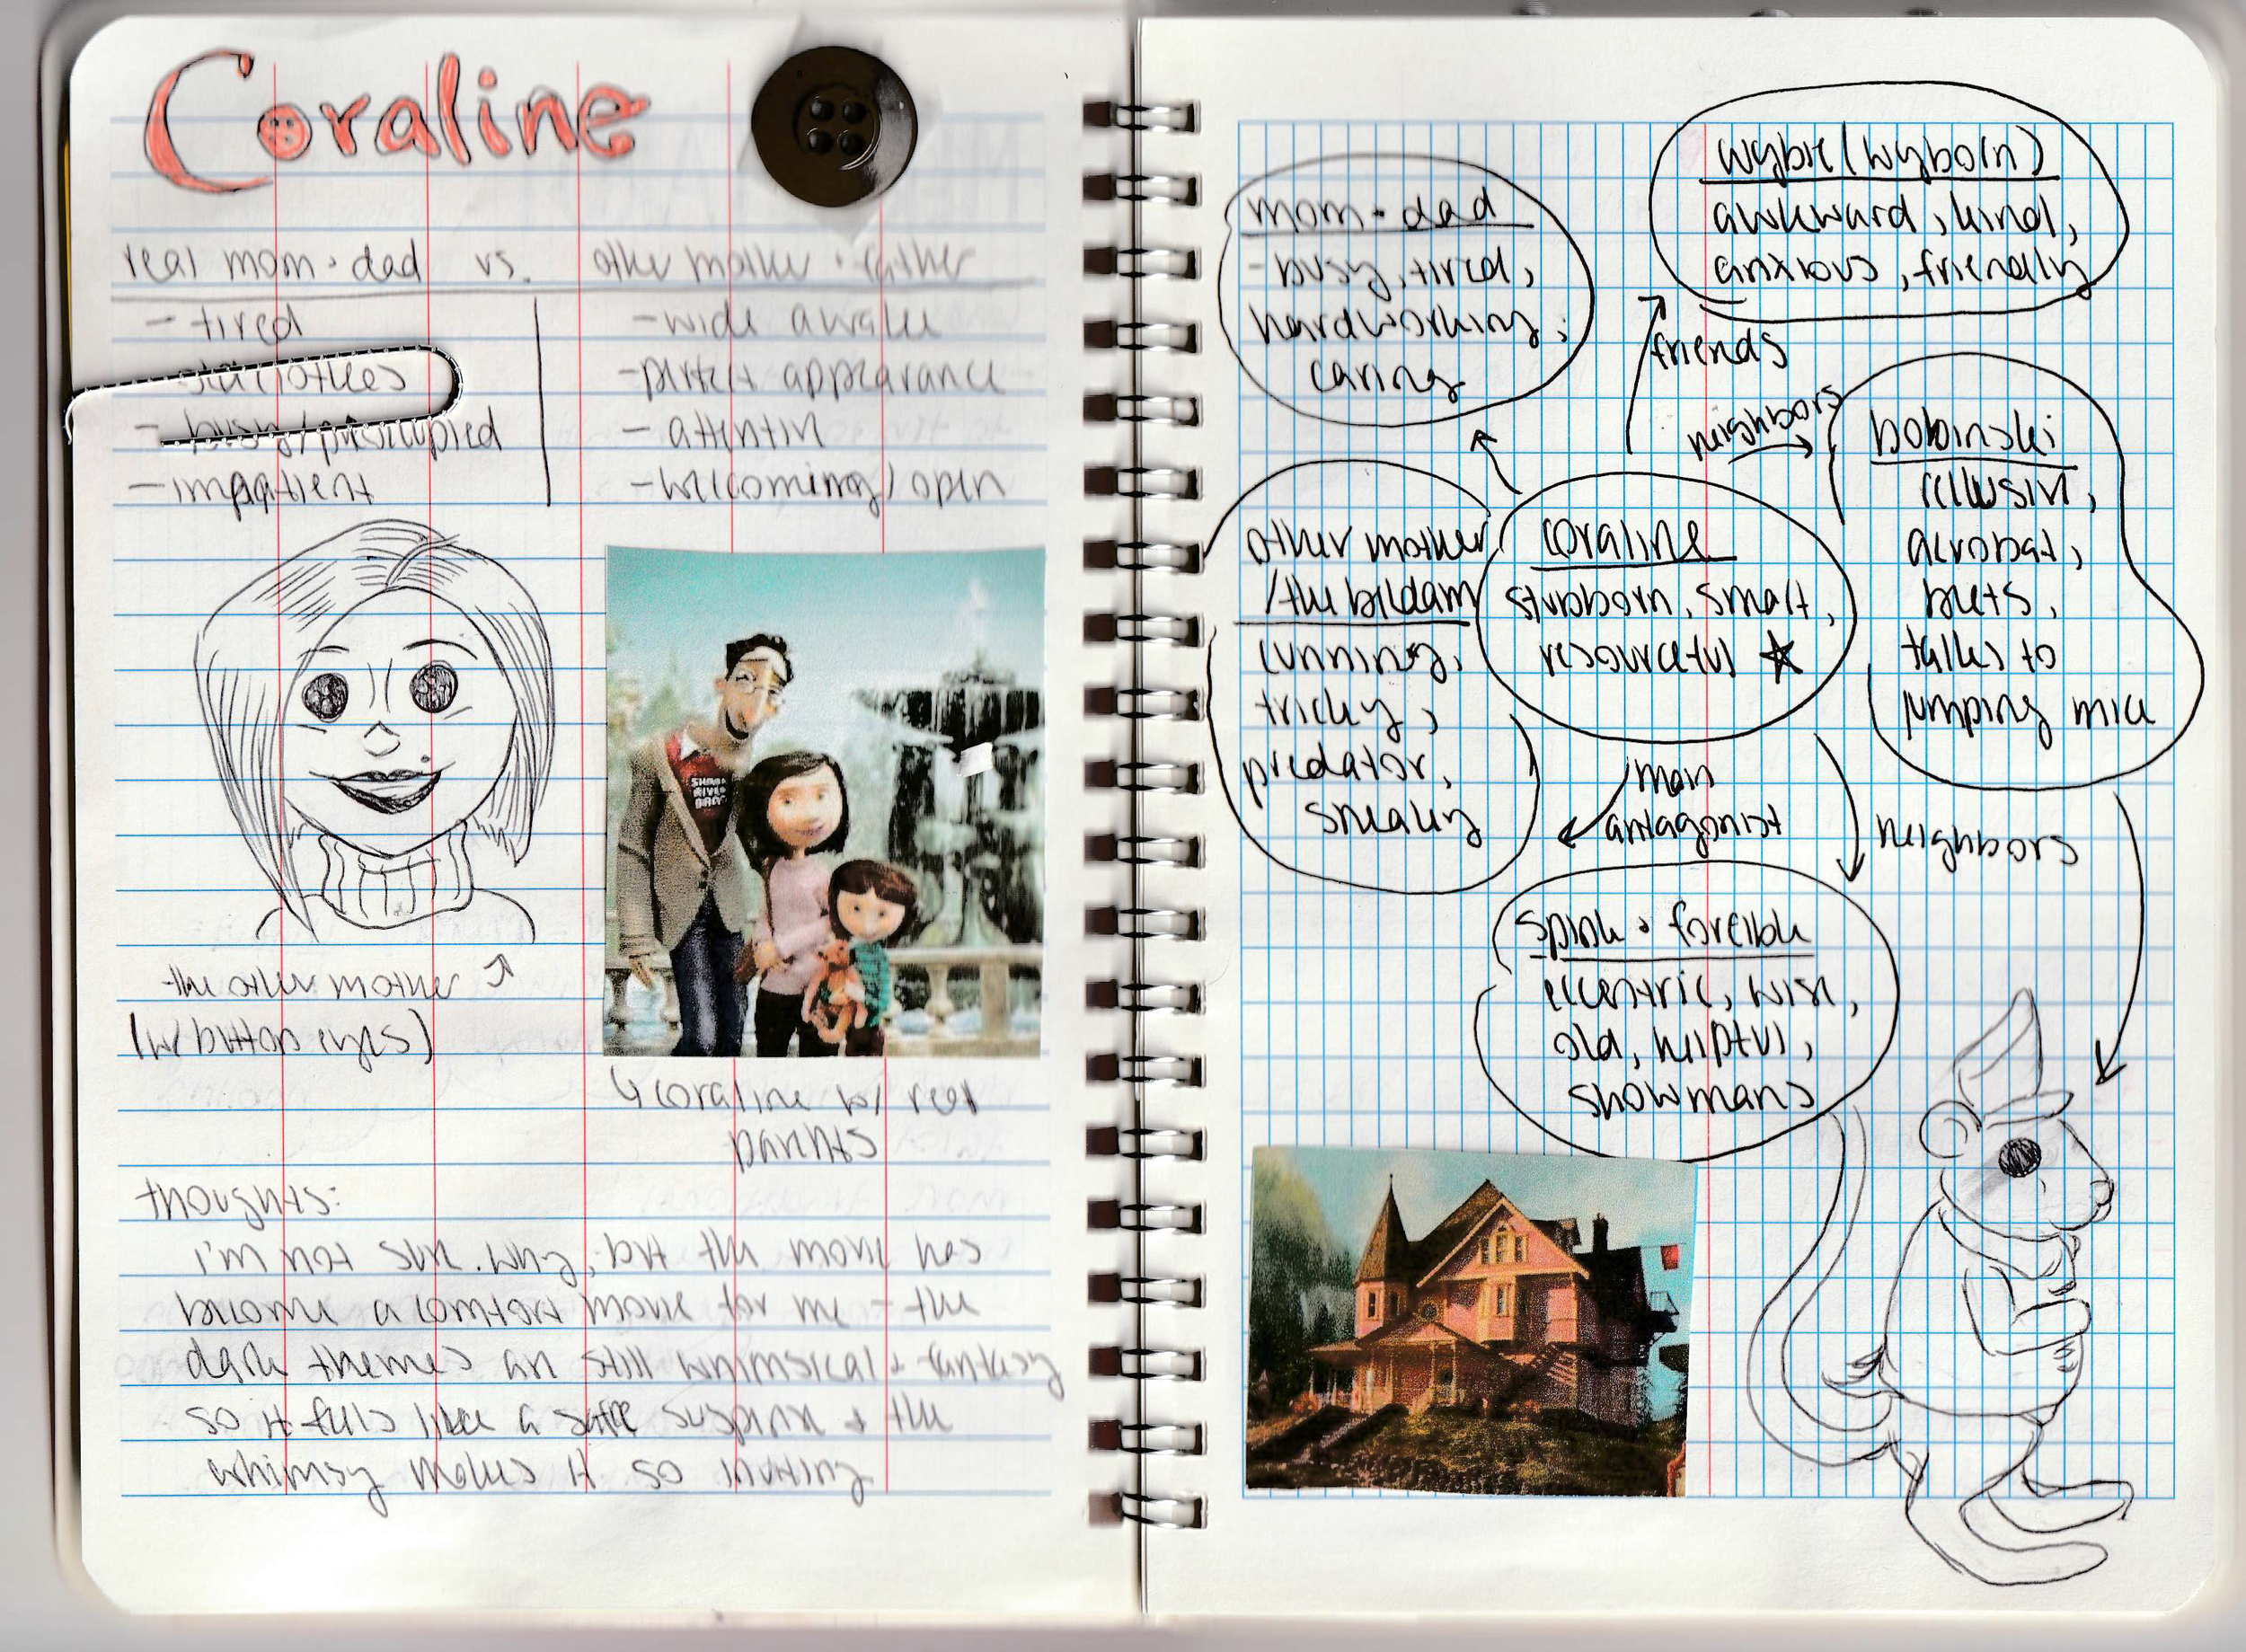 Coraline
real mom + dad vs. other mother + father
- tired
- busy/preoccupied
- impatient
- wide awake
- perfect appearance
- attentive
- welcoming / open
the other mother
(w/ button eyes)
SHARK
RIVER
coraline w/ real
parents
thoughts:
i'm not sure why, but the movie has
become a comfort movie for me - the
dark themes are still whimsical + fantasy
so it feels like a safe suspense + the
whimsy makes it so inviting
wybie (wyborn)
awkward, kind,
anxious, friendly
mom + dad
- busy, tired,
hardworking,
caring
friends
neighbors
bobinski
reclusive,
acrobat,
beets,
talks to
jumping mice
other mother
/the beldam
cunning,
tricky,
predator,
sneaky
coraline
stubborn, smart,
resourceful
main
antagonist
neighbors
spink + forcible
eccentric, wise,
old, helpful,
showmans